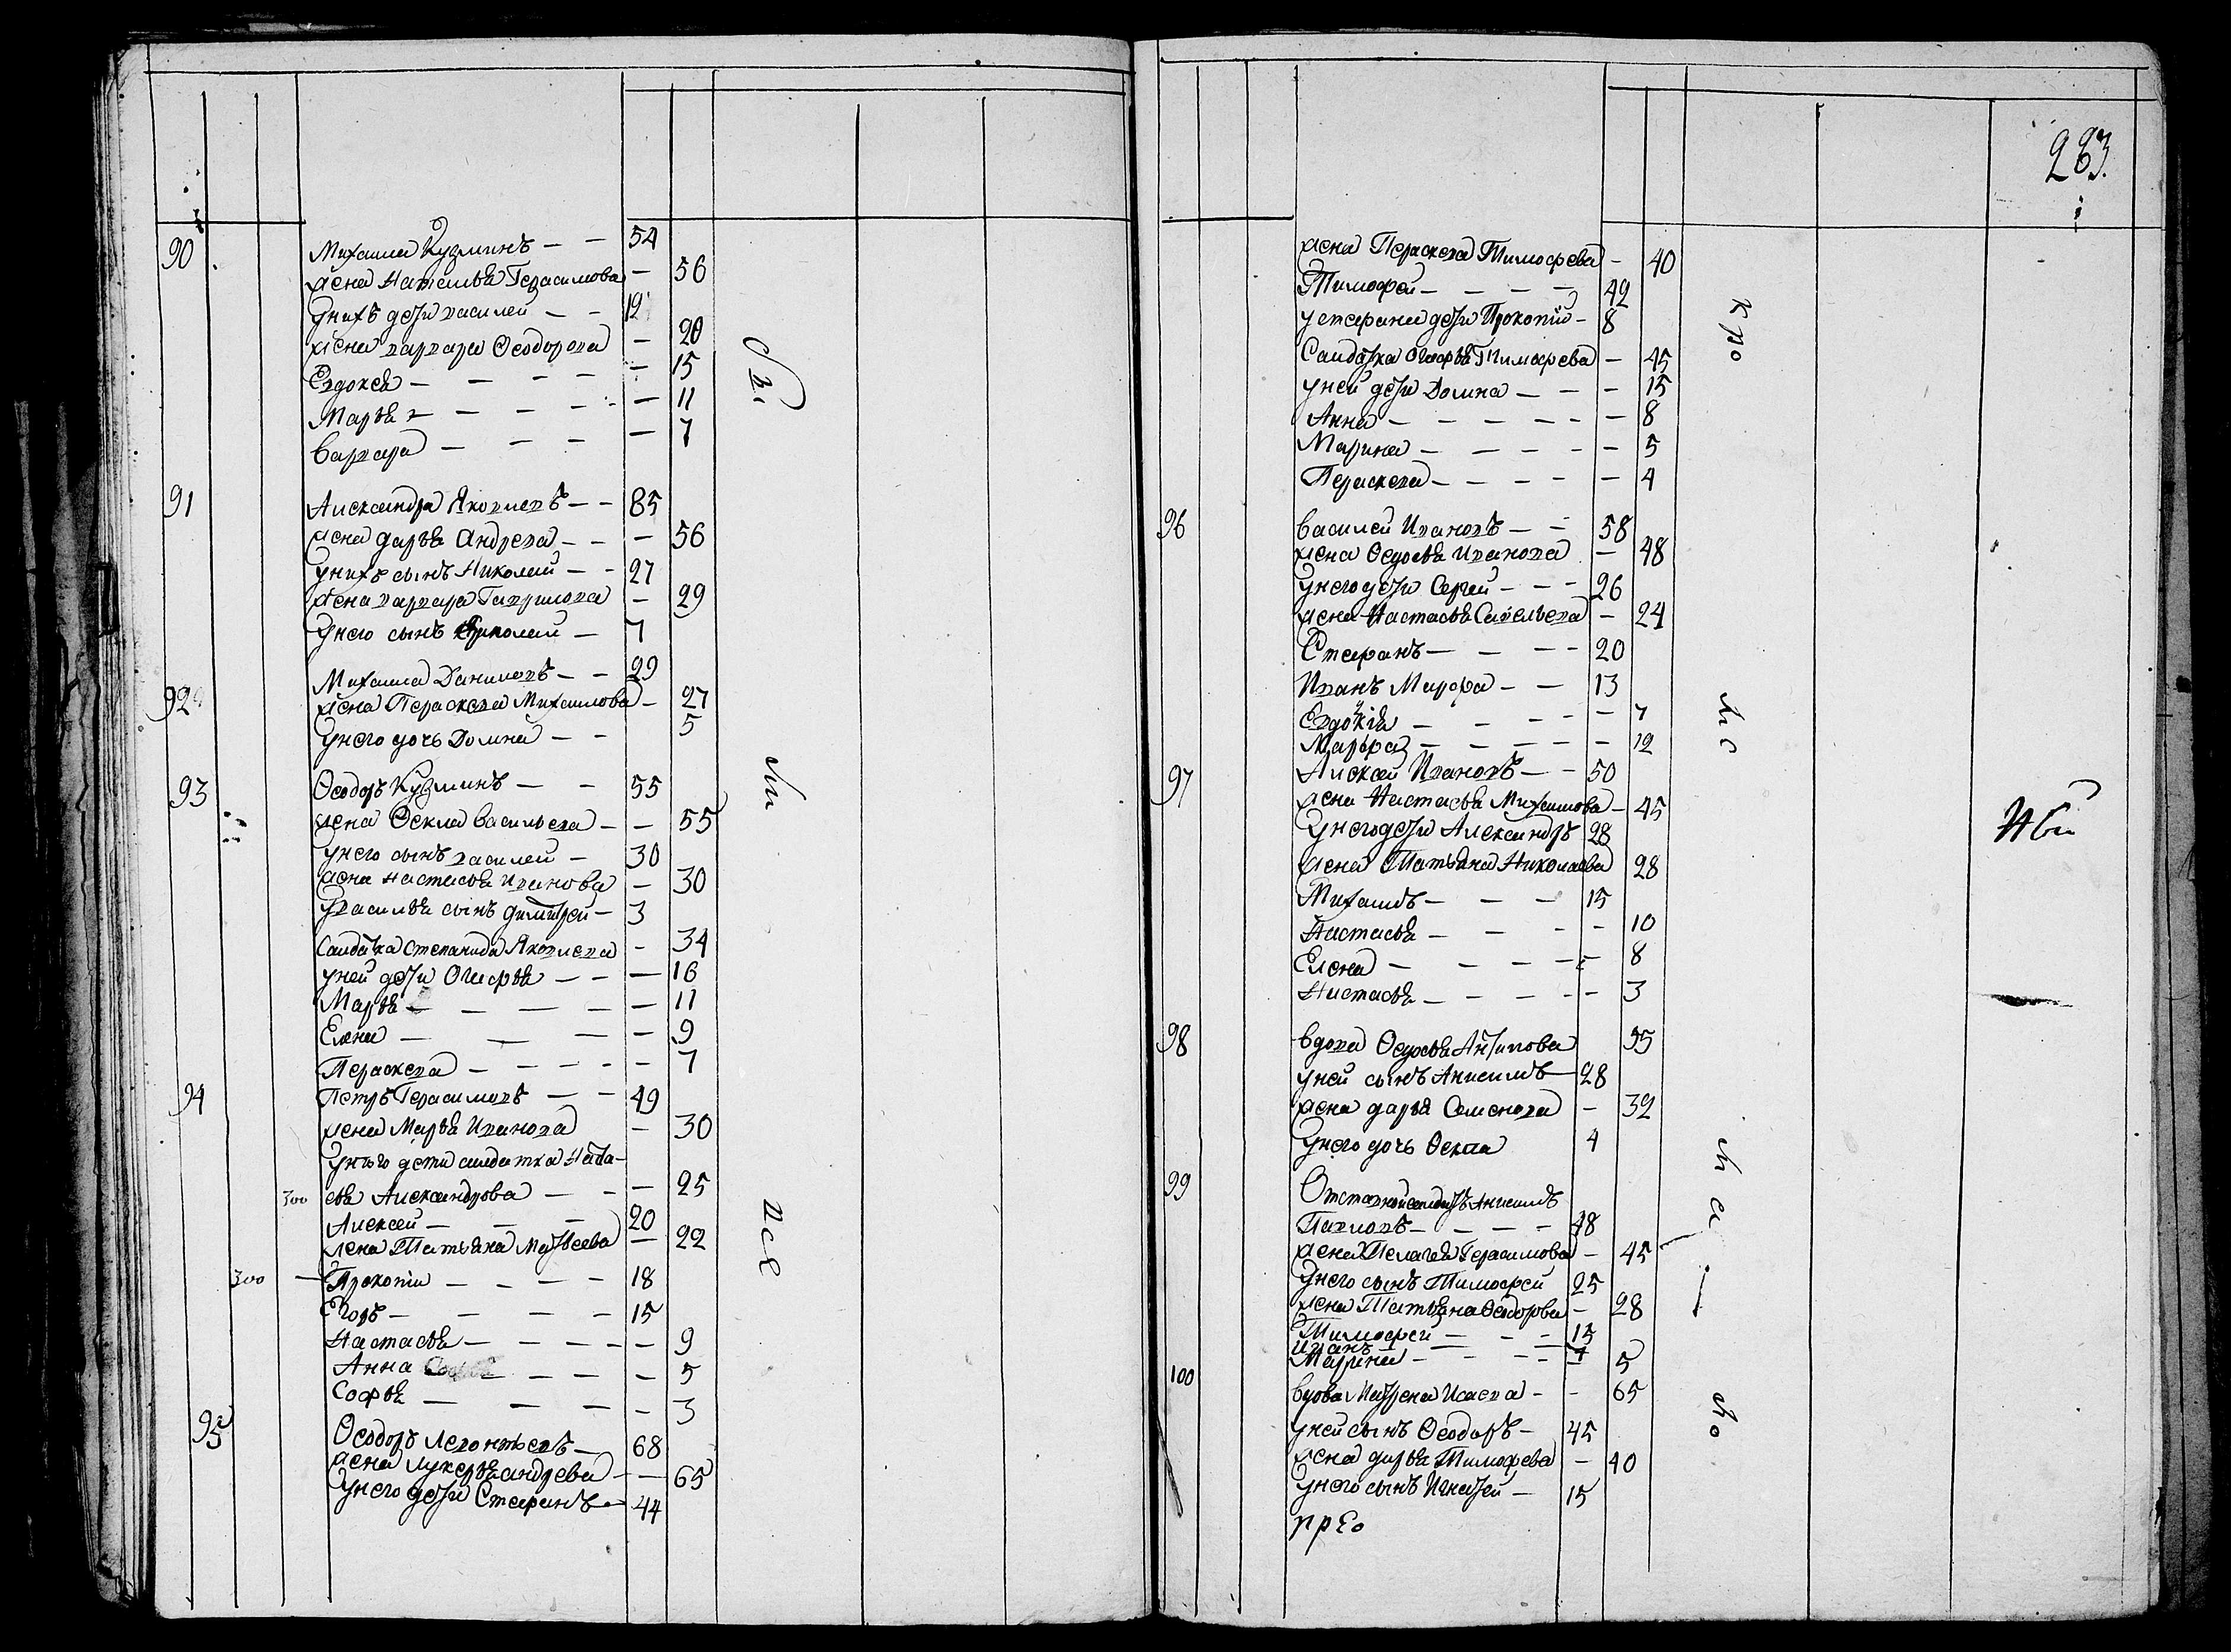 90 Михаила Кузминъ — — 54
жена Наталья Герасимова — 56
у нихъ дети василей — — 12
жена варвара Ѳеодорова — 20
Евдокея — — — — 15
Марья — — — — 11
варвара — — — — 7
91 Александра Яковлевъ — — 85
жена дарья Андреева — — — 56
у нихъ сынъ Николай — — 27
жена варвара Гаврилова — 29
у него сынъ — 7
92 Михаила Даниловъ — — 29
жена Пераскева Михаилова — 27
у него дочь Домна — — 5
93 Ѳеодоръ Кузминъ — — 55
жена Ѳекла васильева — — 55
у него сынъ василей — 30
жена настасья иванова — 30
у василья сынъ димитрей — 3
Салдатка степанида Яковлева — 34
у ней дети — — — 16
Марья — — — — 11
Елена — — — — 9
Пераскева — — — — — 7
94 Петръ Герасимовъ — — 49
жена Марья Иванова — 30
у нъго дети салдатка Наста-
300 сья Александрова — — — 25
Алексей — — — 20
жена Татьяна Матвеева — 22
300 — Прокопи — — — — 18
Егоръ — — — — 15
Настасья — — — — — 9
Анна — — — — 5
Софья — — — — 3
95 Ѳеодоръ Леонтьевъ — 68
жена лукерья андреева — — 65
у него дети Стефанъ — 44
Я в и
л и
в с я
263.
жена Пераскева Тимофева — 40
Тимофей — — — — 42
у стефана дети Прокопiй — 8
Салдатка Тимофева — 45
у ней дети Домна — — — 15
Анна — — — — — — 8
Марина — — — — — 5
Пераскева — — — — — 4
96 василей Ивановъ — — 58
жена Ѳедосья Иванова — 48
у него дети Сергей — — — 26
жена Настасья Савельева — 24
Стефанъ — — — — 20
Иванъ Марфа — — 13
Евдокiя — — — — — 7
Марфа — — — — — 12
97 Алексей Ивановъ — — 50
жена Настасья Михаилова — 45
у него дети Александръ 28
жена Татьяна Николаева 28
Михаилъ — — — 15
Настасья — — — — 10
Елена — — — — — 8
Настасья — — — — — 3
98 вдова Ѳедосья Антипова 95
у ней сынъ Анисимъ — 28
жена дарья Семенова — 32
у него дочь Ѳекла 4
99 Отставной салдатъ Анисимъ
Павловъ — — — — 48
жена Пелагея Герасимова — 45
у него сынъ Тимофей 25
жена Татьяна Ѳеодорова — 28
Тимофей — — — 15
Иванъ — — 7
Марина — — — — 5
100 вдова Матрена Исаева — — 65
у ней сынъ Ѳеодоръ — 45
жена дарья Тимофева — 40
у него сынъ Игнатей — 15
кро